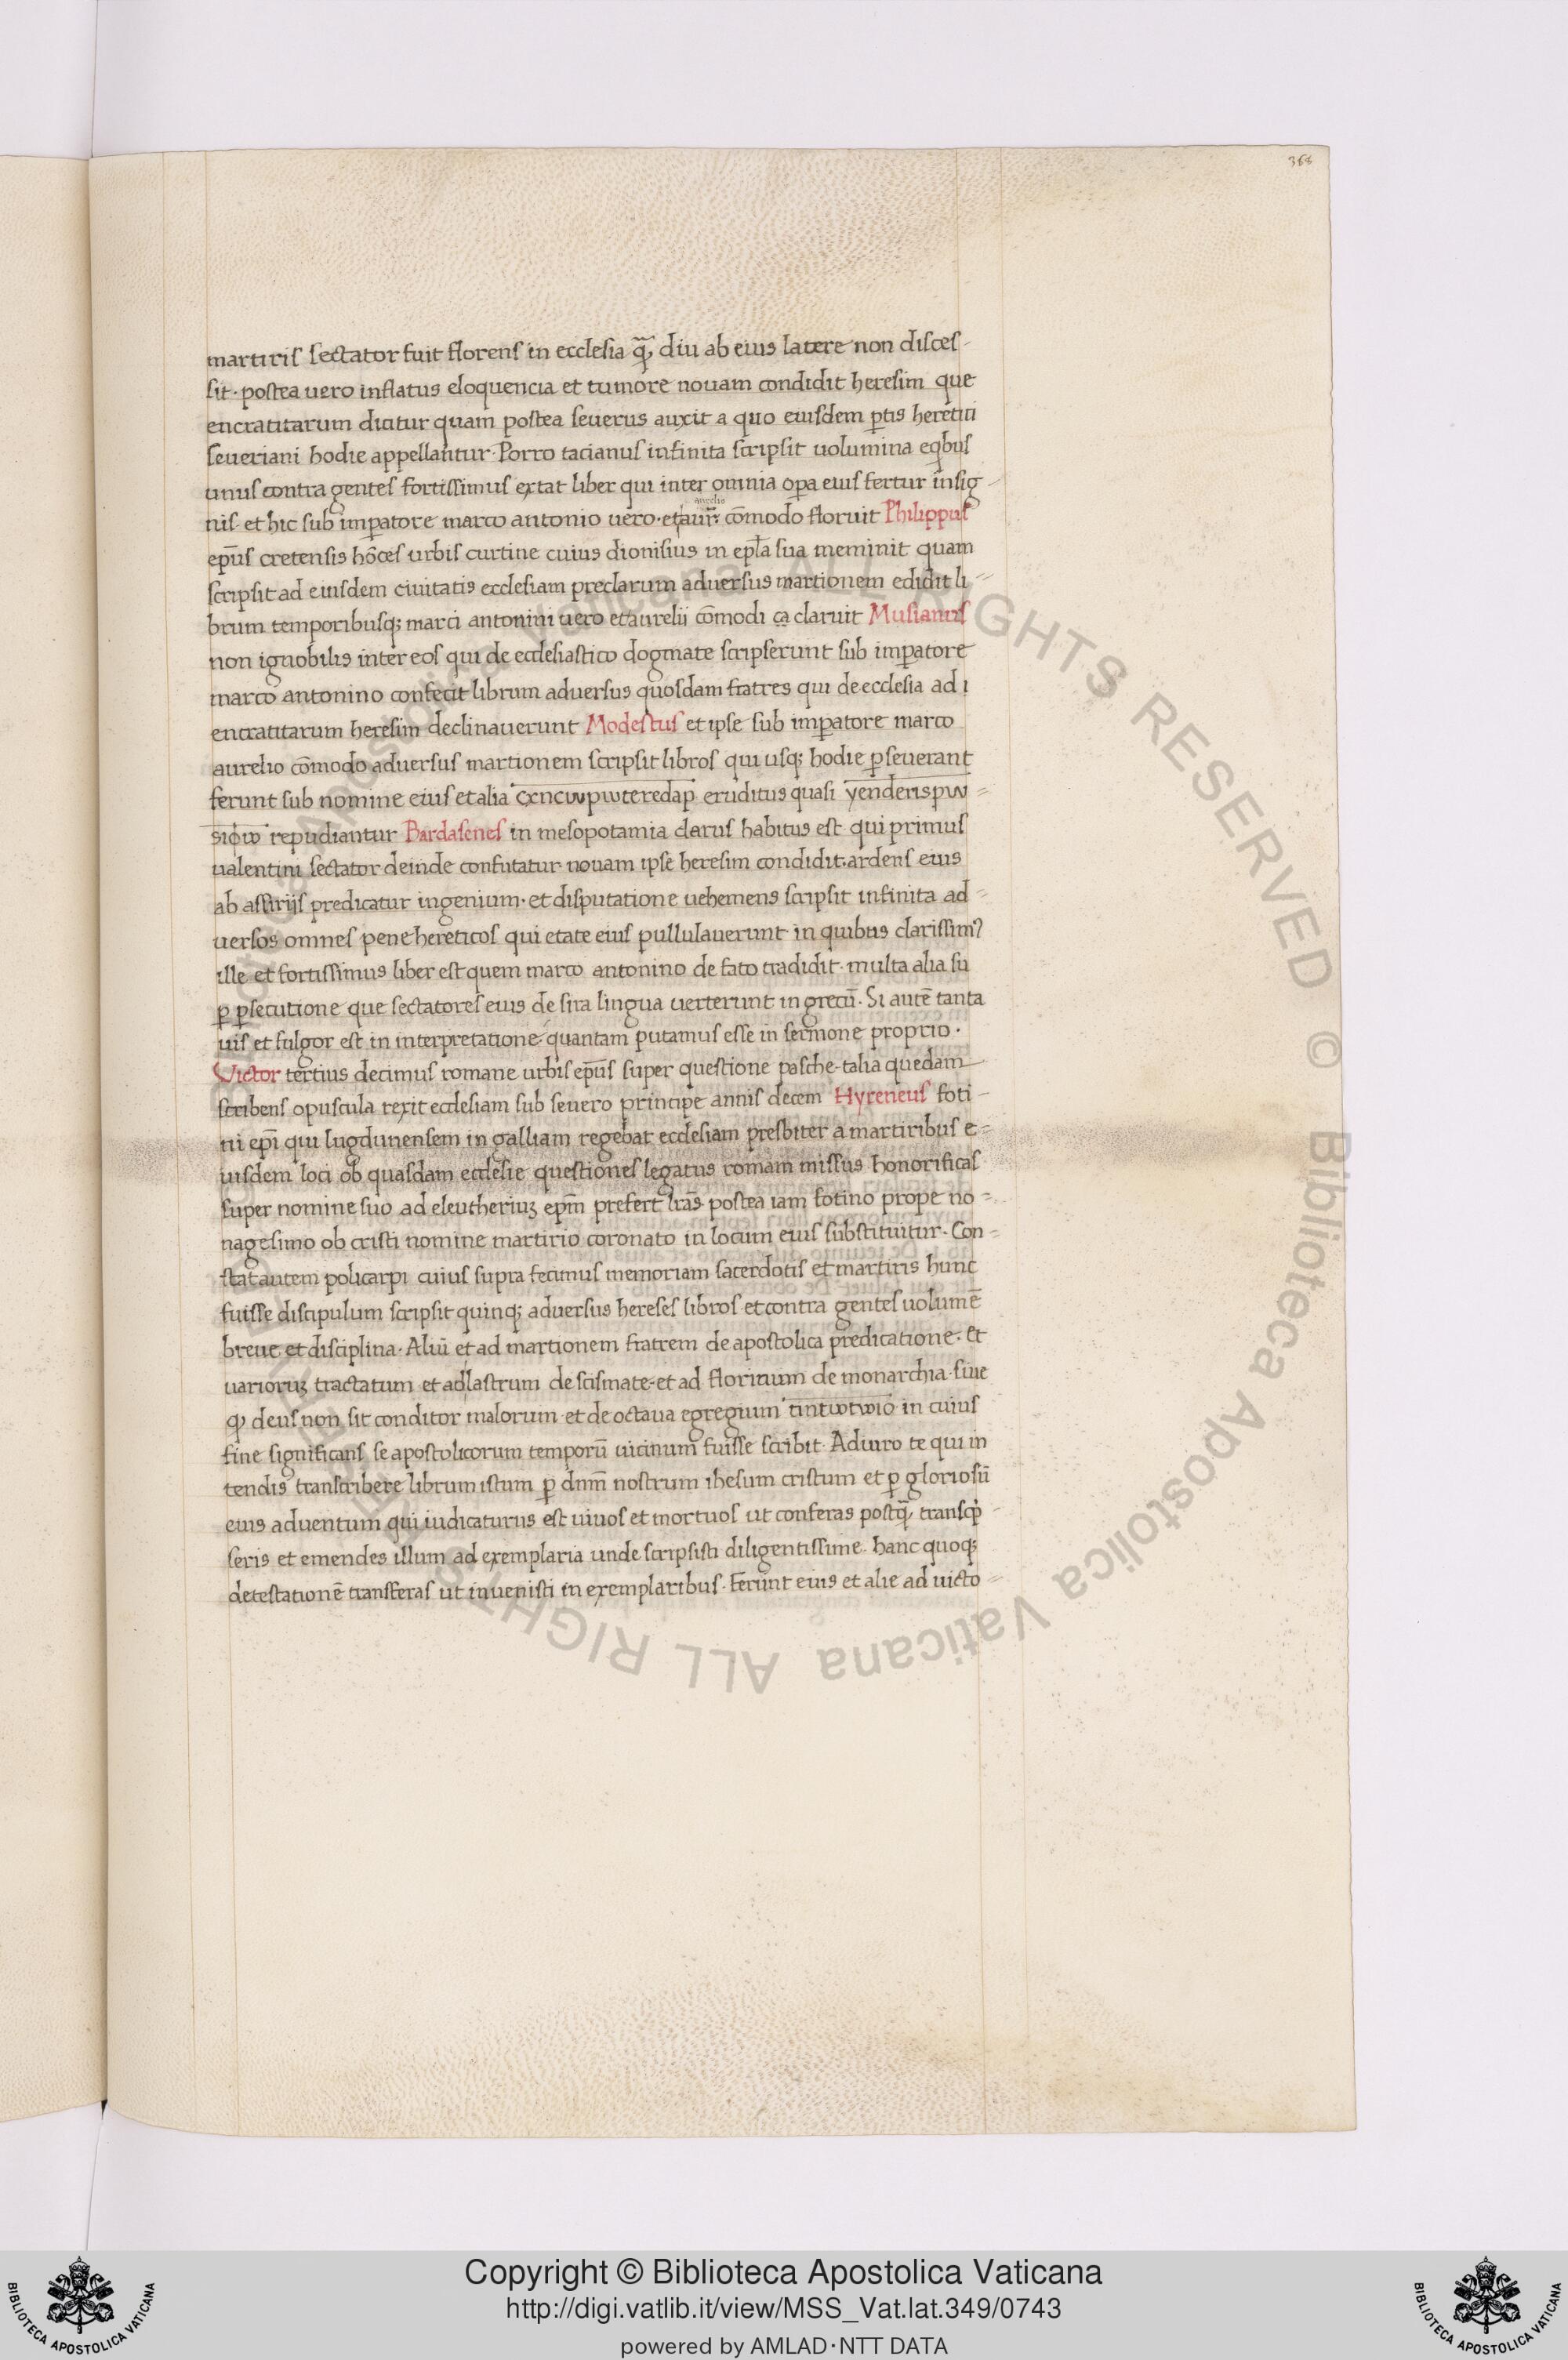 368
martiris sectator fuit florens in ecclesia q̃ȝ diu ab eius latere non disces-
sit · postea uero inflatus eloquencia et tumore nouam condidit heresim que
encratitarum dicitur quam postea seuerus auxit a quo eiusdem ꝑtis heretici
seueriani hodie appellantur · Porro tacianus infinita scripsit uolumina eqͥbus
unus contra gentes fortissimus extat liber qui inter omnia oꝑa eius fertur insig-
aurelio
nis et hic sub imꝑatore marco antonio uero · et aur̃ · cōmodo floruit Philippus
ep̄us cretensis hōces urbis curtine cuius dionisius in epl̄a sua meminit quam
scripsit ad eiusdem ciuitatis ecclesiam preclarum aduersus martionem edidit li-
brum temporibusqꝫ marci antonini uero et aurelii cōmodi ca claruit Musianus
non ignobilis inter eos qui de ecclesiastico dogmate scripserunt sub imꝑatore
marco antonino confecit librum aduersus quosdam fratres qui de ecclesia ad ı
encratitarum heresim declinauerunt Modestus et ipse sub imꝑatore marco
aurelio cōmodo aduersus martionem scripsit libros qui usqꝫ hodie ꝑseuerant
ferunt sub nomine eius et alia cxncωpωteredap eruditus quasi yenderispω-
siϕω repudiantur Bardasenes in mesopotamia clarus habitus est qui primus
ualentini sectator deinde confutatur nouam ipse heresim condidit · ardens eius
ab assirijs predicatur ingenium · et disputatione uehemens scripsit infinita ad-
uersos omnes pene hereticos qui etate eius pullulauerunt in quibus clarissimꝰ
ille et fortissimus liber est quem marco antonino de fato tradidit · multa alia su
ꝑ ꝑsecutione que sectatores eius de sira lingua uerterunt in grecū · Si autē tanta
uis et fulgor est in interpretatione quantam putamus esse in sermone proprio ·
Victor tertius decimus romane urbis ep̄us super questione pasche talia quedam
scribens opuscula rexit ecclesiam sub seuero principe annis decem Hyreneus foti-
ni ep̄i qui lugdunensem in galliam regebat ecclesiam presbiter a martiribus e-
iusdem loci ob quasdam ecclesie questiones legatus romam missus honorificas
super nomine suo ad eleutheriuꝫ ep̄m prefert l̄ras postea iam fotino prope no-
nagesimo ob cristi nomine martirio coronato in locum eius substituitur · Con-
stat autem policarpi cuius supra fecimus memoriam sacerdotis et martiris hunc
fuisse discipulum scripsit quinqꝫ aduersus hereses libros et contra gentes uolumē
breue et disciplina · Aliū et ad martionem fratrem de apostolica predicatione · Et
uarioruꝫ tractatum et ad lastrum de scismate et ad floritium de monarchia siue
qꝫ deus non sit conditor malorum et de octaua egregium tintωtωio in cuius
fine significans se apostolicorum temporū uicinum fuisse scribit · Adiuro te qui in
tendis transcribere librum istum ꝑ dn̄m nostrum ihesum cristum et ꝑ gloriosū
eius aduentum qui iudicaturus est uiuos et mortuos ut conferas postq̃ȝ transcͥp-
seris et emendes illum ad exemplaria unde scripsisti diligentissime hanc quoqꝫ
detestationē transferas ut inuenisti in exemplaribus · Ferunt eius et alie ad uicto-
© Biblioteca Apostolica Vaticana ALL RIGHTS RESERVED
Copyright © Biblioteca Apostolica Vaticana
http://digi.vatlib.it/view/MSS_Vat.lat.349/0743
powered by AMLAD·NTT DATA
BIBLIOTECA APOSTOLICA VATICANA
BIBLIOTECA APOSTOLICA VATICANA